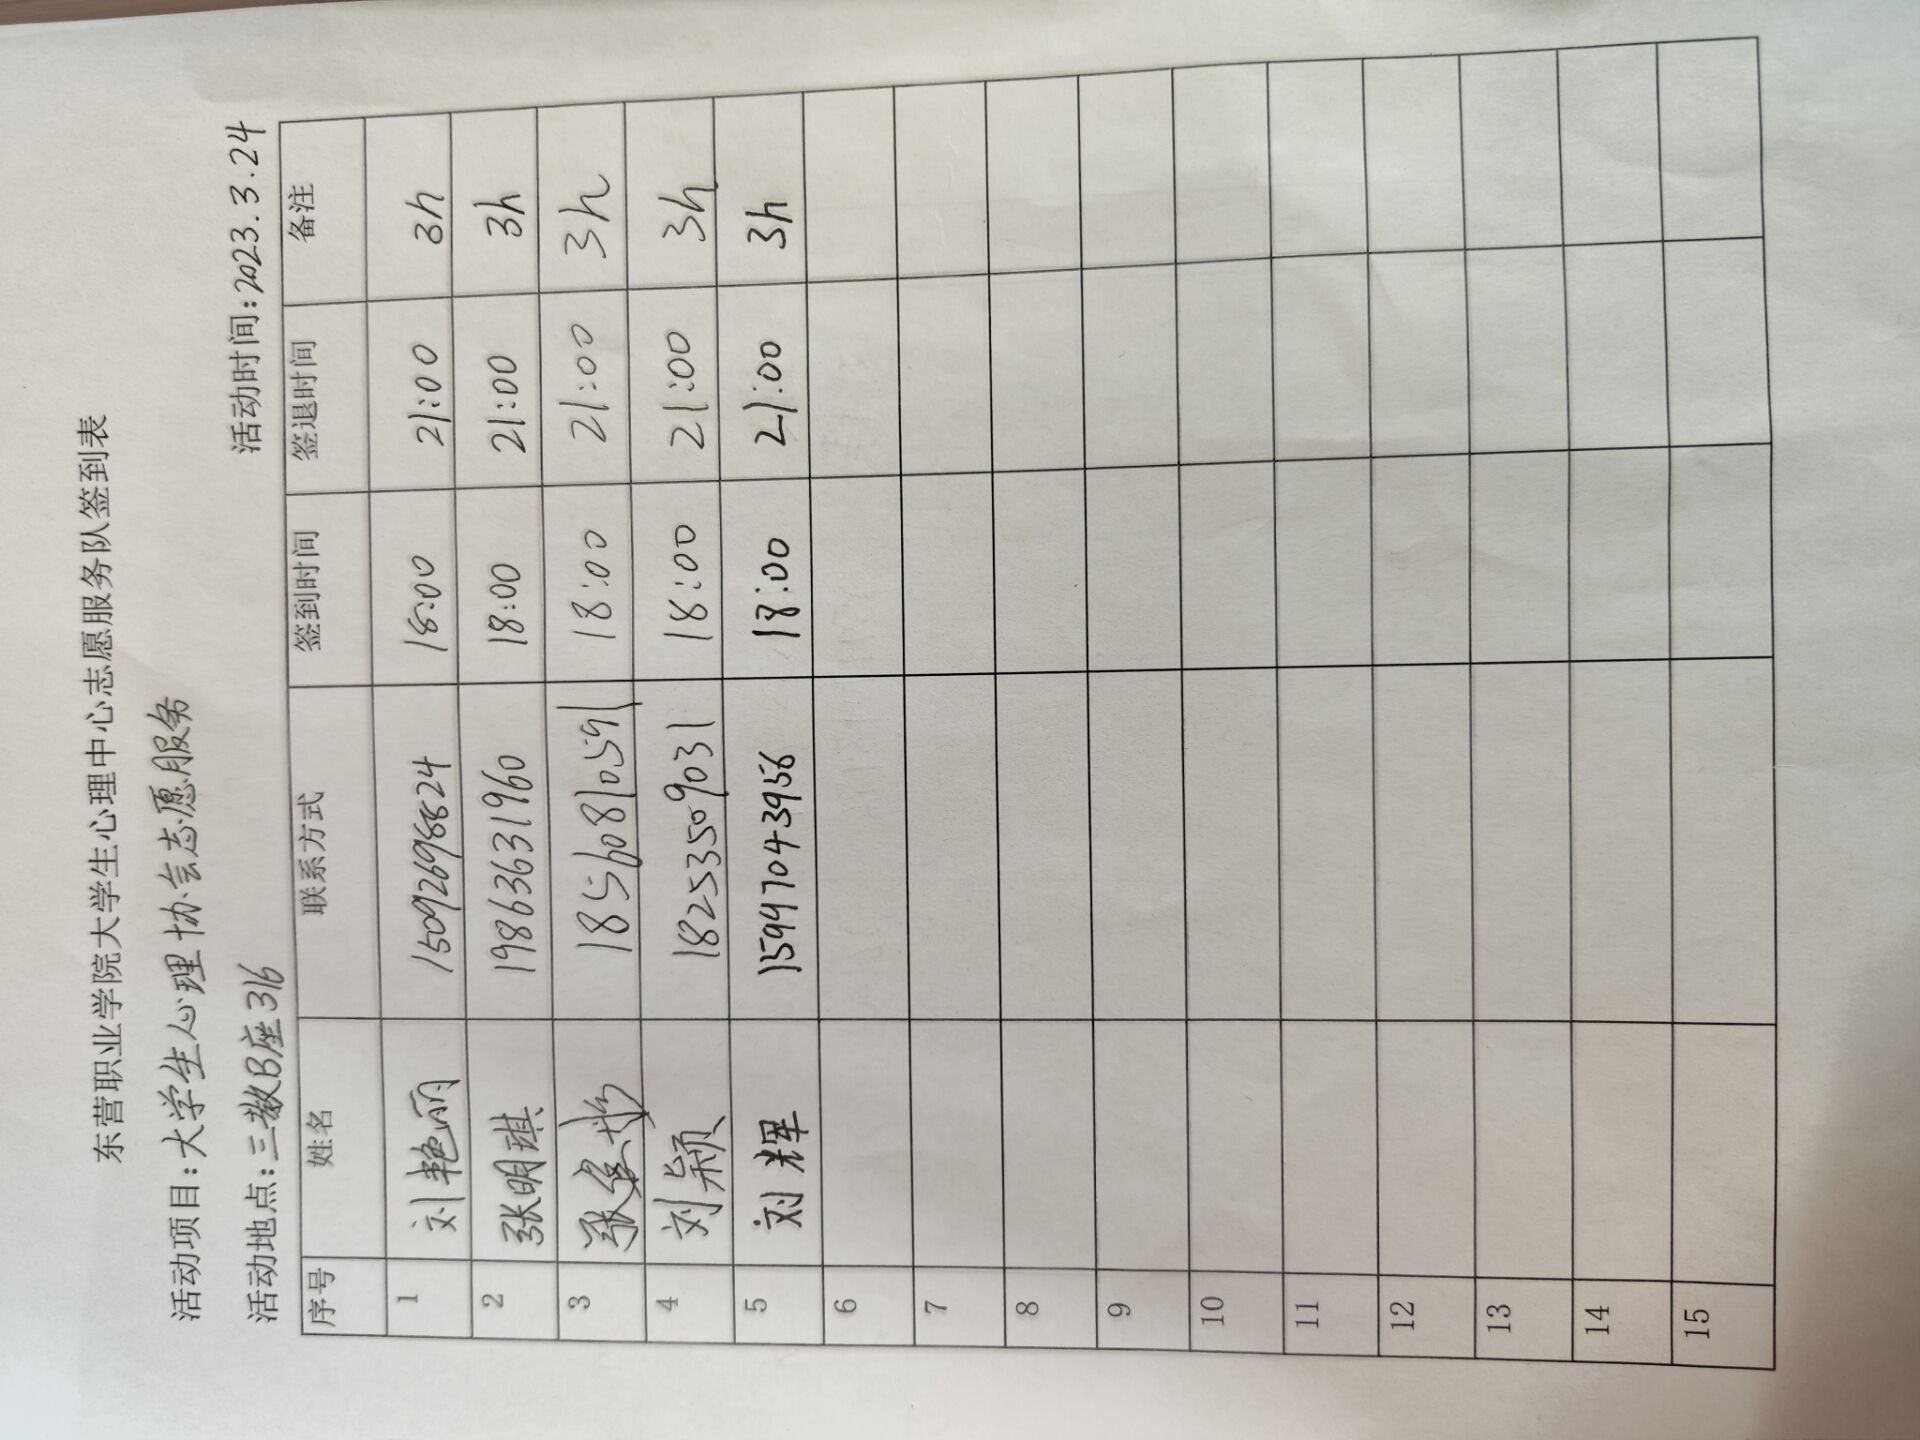 东营职业学院大学生心理中心志愿服务队签到表
活动项目:大学生心理协会志愿服务
活动地点:三教B座316 活动时间:2023.3.24
序号 姓名 联系方式 签到时间 签退时间 备注
1 刘艳丽 15092698824 18:00 21:00 3h
2 张明琪 19863631960 18:00 21:00 3h
3 张 18560810591 18:00 21:00 3h
4 刘颖 18253509031 18:00 21:00 3h
5 刘辉 15947043956 18:00 21:00 3h
6
7
8
9
10
11
12
13
14
15